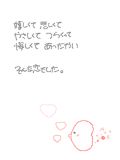 嬉しくて 悲しくて
やさしくて つらくて
悔しくて あったかい
そんな恋でした。